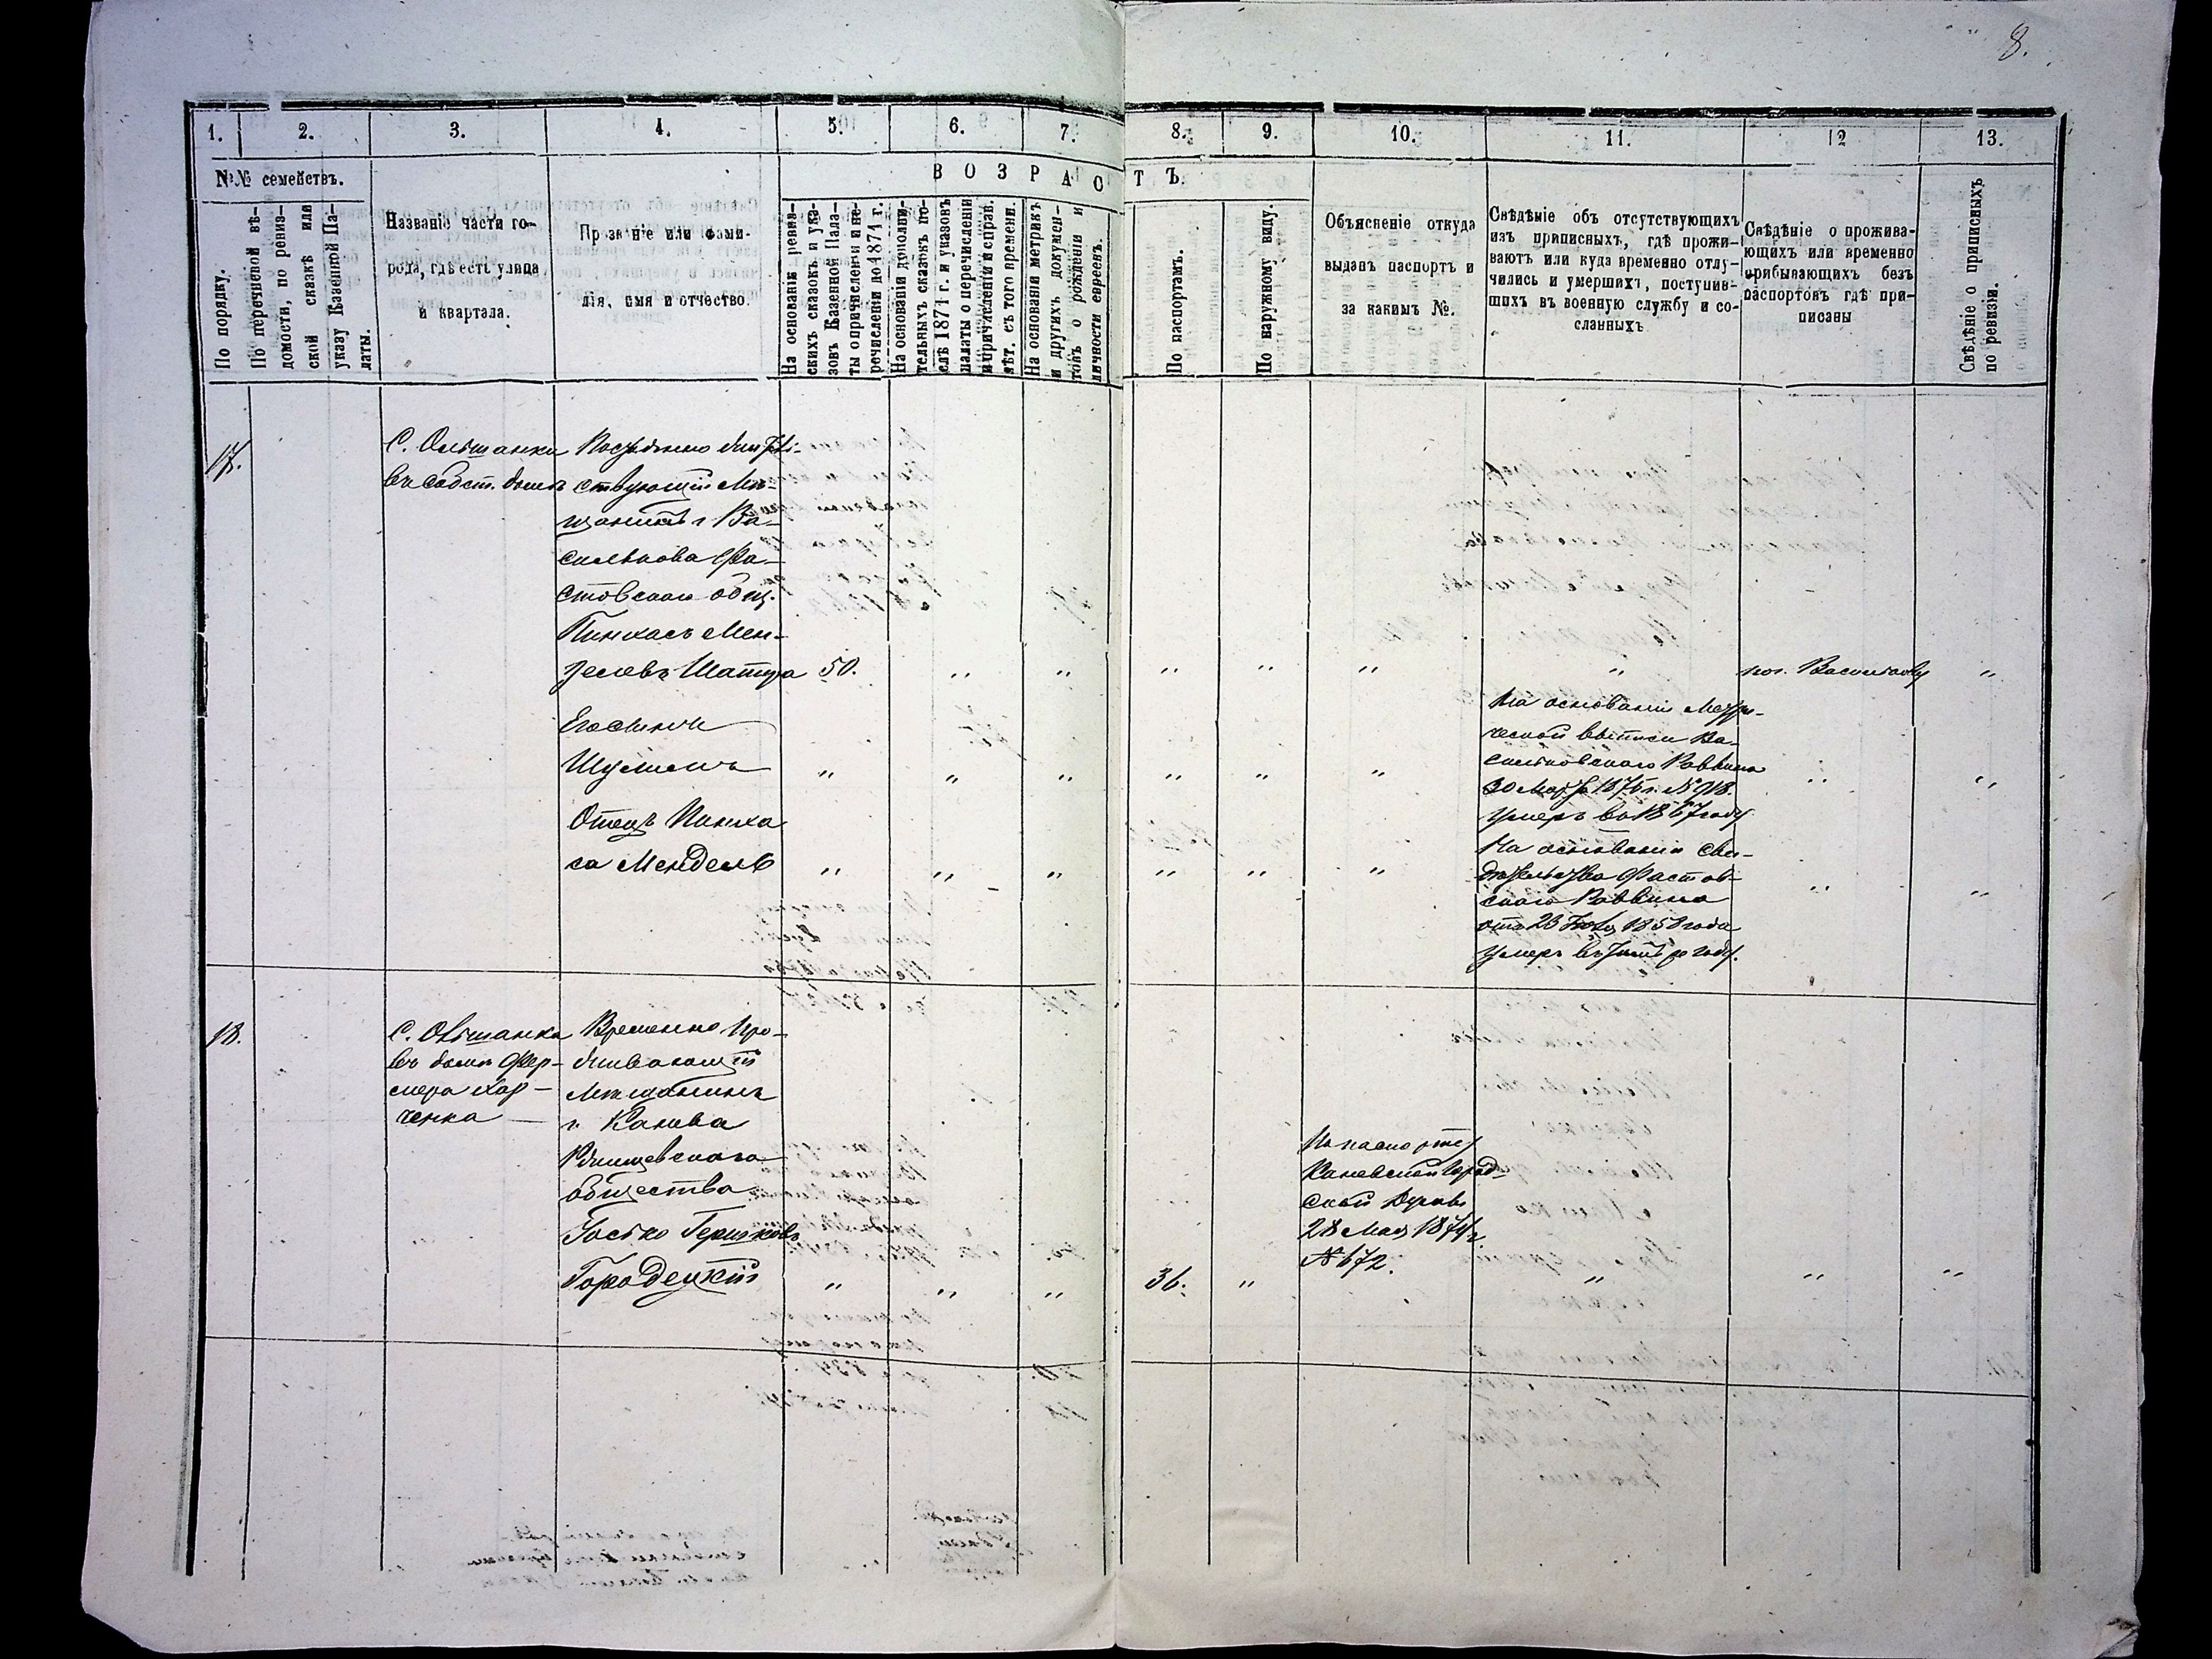 8.
1. 2. 3. 4. 5. 6. 7. 8. 9. 10. 11. 12 13.
№№ семействъ.
ВОЗРАСТЪ.
По порядку.
По перечневой вѣ-
домости, по ревиз-
ской сказкѣ или
указу Казенной Па-
латы.
Названіе части го-
рода, гдѣ есть улица
и квартала.
Прозваніе или фами-
лія, имя и отчество.
На основаніи ревиз-
скихъ сказокъ и ука-
зовъ Казенной Пала-
ты о причисленіи и пе-
речисленіи до 1871 г.
На основаніи дополни-
тельныхъ сказокъ по-
слѣ 1871 г. и указовъ
палаты о перечисленіи
и причисленіи и справ.
лѣт. съ того времени.
На основаніи метрикъ
и другихъ докумен-
товъ о рожденіи и
личности евреевъ.
По паспортамъ.
По наружному виду.
Объясненіе откуда
выданъ паспортъ и
за какимъ №.
Свѣдѣніе объ отсутствующихъ
изъ приписныхъ, гдѣ прожи-
ваютъ или куда временно отлу-
чились и умершихъ, поступив-
шихъ въ военную службу и со-
сланныхъ
Свѣдѣніе о прожива-
ющихъ или временно
прибывающихъ безъ
паспортовъ гдѣ при-
писаны
Свѣдѣніе о приписныхъ
по ревизіи.
17.
С. Ольшанки
въ собст. домѣ
ствующій Мѣ-
щанинъ г. Ва-
сильковa Фа-
стовскаго общ.
Пинхасъ Мен-
делевъ Шатра 50. " " " " " " Василькову "
Шулимъ " " " " " " " "
На основаніи Метри-
ческой выписи Ва-
сильковскаго Раввина
30 1875 г. № 918.
умеръ въ 1867 году
Отецъ Пинха
са Мендель " " " " " " " "
На основаніи Сви-
дѣтельства Фастов-
скаго Раввина
отъ 23 1858 года
умеръ въ году.
18.
С. Ольшанка
въ домѣ Фер-
мера Хар-
ченка
Временно про-
живающій
Мѣщанинъ
г. Канева
Ржищевскаго
общества
Іосько Гершковъ
Городецкій " " " 36. " " " "
По паспорту
Каневской Город-
ской Думы
28 Мая 1874 г.
№ 672.